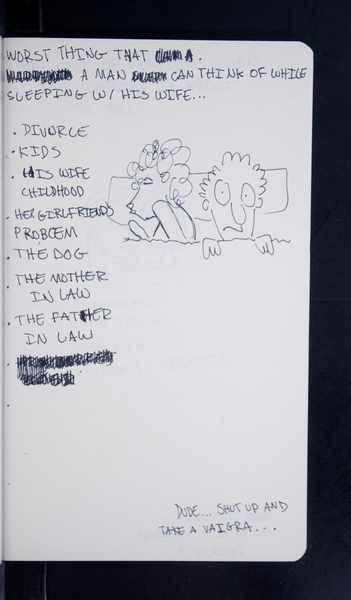 WORST THING THAT
A MAN CAN THINK OF WHILE
SLEEPING W/ HIS WIFE...
• DIVORCE
• KIDS
• HIS WIFE
CHILDHOOD
• HER GIRLFRIENDS
PROBLEM
• THE DOG
• THE MOTHER
IN LAW
• THE FATHER
IN LAW
DUDE... SHUT UP AND
TAKE A VAIGRA...